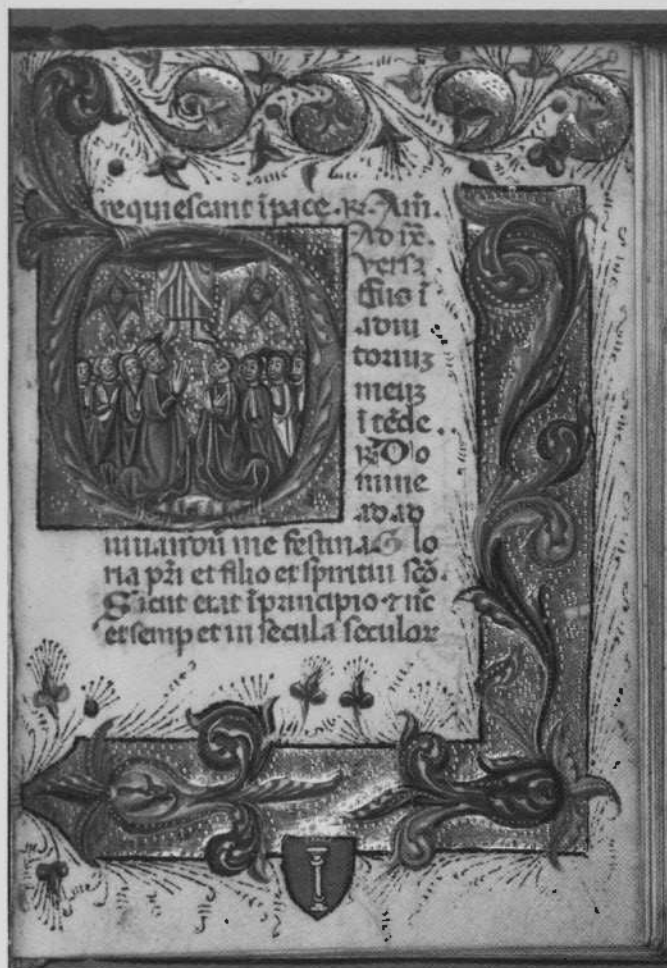 requiescant ī pace. ꝶ. Am̄.
Ad ix.
versꝫ
Eus ī
adiu
toriuꝫ
meuꝫ
ī tēde.
ꝶ. Do
mine
ad ad
iuuandū me festina. G lo
ria pr̄i et filio et spiritui scō.
Sicut erat ī principio ⁊ nc̄
et semp et in secula seculoꝝ